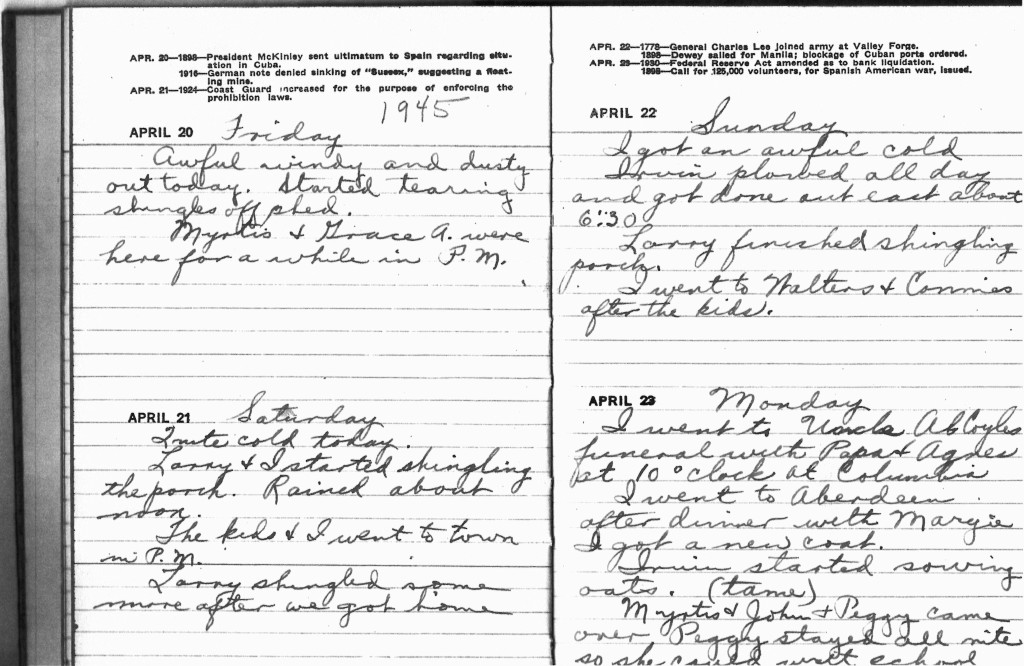 APR. 20—1898—President McKinley sent ultimatum to Spain regarding situ-
ation in Cuba.
1916—German note denied sinking of "Sussex," suggesting a float-
ing mine.
APR. 21—1924—Coast Guard increased for the purpose of enforcing the
prohibition laws.
1945
APRIL 20 Friday
Awful windy and dusty
out today. Started tearing
shingles off shed.
Myrtis & Grace A. were
here for a while in P.M.
APRIL 21 Saturday
Quite cold today.
Larry & I started shingling
the porch. Rained about
noon.
The kids & I went to town
in P.M.
Larry shingled some
more after we got home
APR. 22—1778—General Charles Lee joined army at Valley Forge.
1898—Dewey sailed for Manila; blockage of Cuban ports ordered.
APR. 23—1930—Federal Reserve Act amended as to bank liquidation.
1898—Call for 125,000 volunteers, for Spanish American war, issued.
APRIL 22 Sunday
I got an awful cold
Irwin plowed all day
and got done out east about
6:30
Larry finished shingling
porch.
I went to Walters & Connies
after the kids.
APRIL 23 Monday
I went to Uncle Ab Coyles
funeral with Papa & Agnes
at 10 o'clock at Columbia
I went to Aberdeen
after dinner with Margie
I got a new coat.
Irwin started sowing
oats. (tame)
Myrtis & John & Peggy came
over. Peggy stayed all nite
so she could visit school